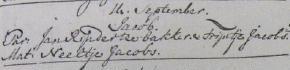 14. September.
Jacob
Par. Jan Rijnderze bakker & Trijntje Jacobs.
Mat. Neeltje Jacobs.